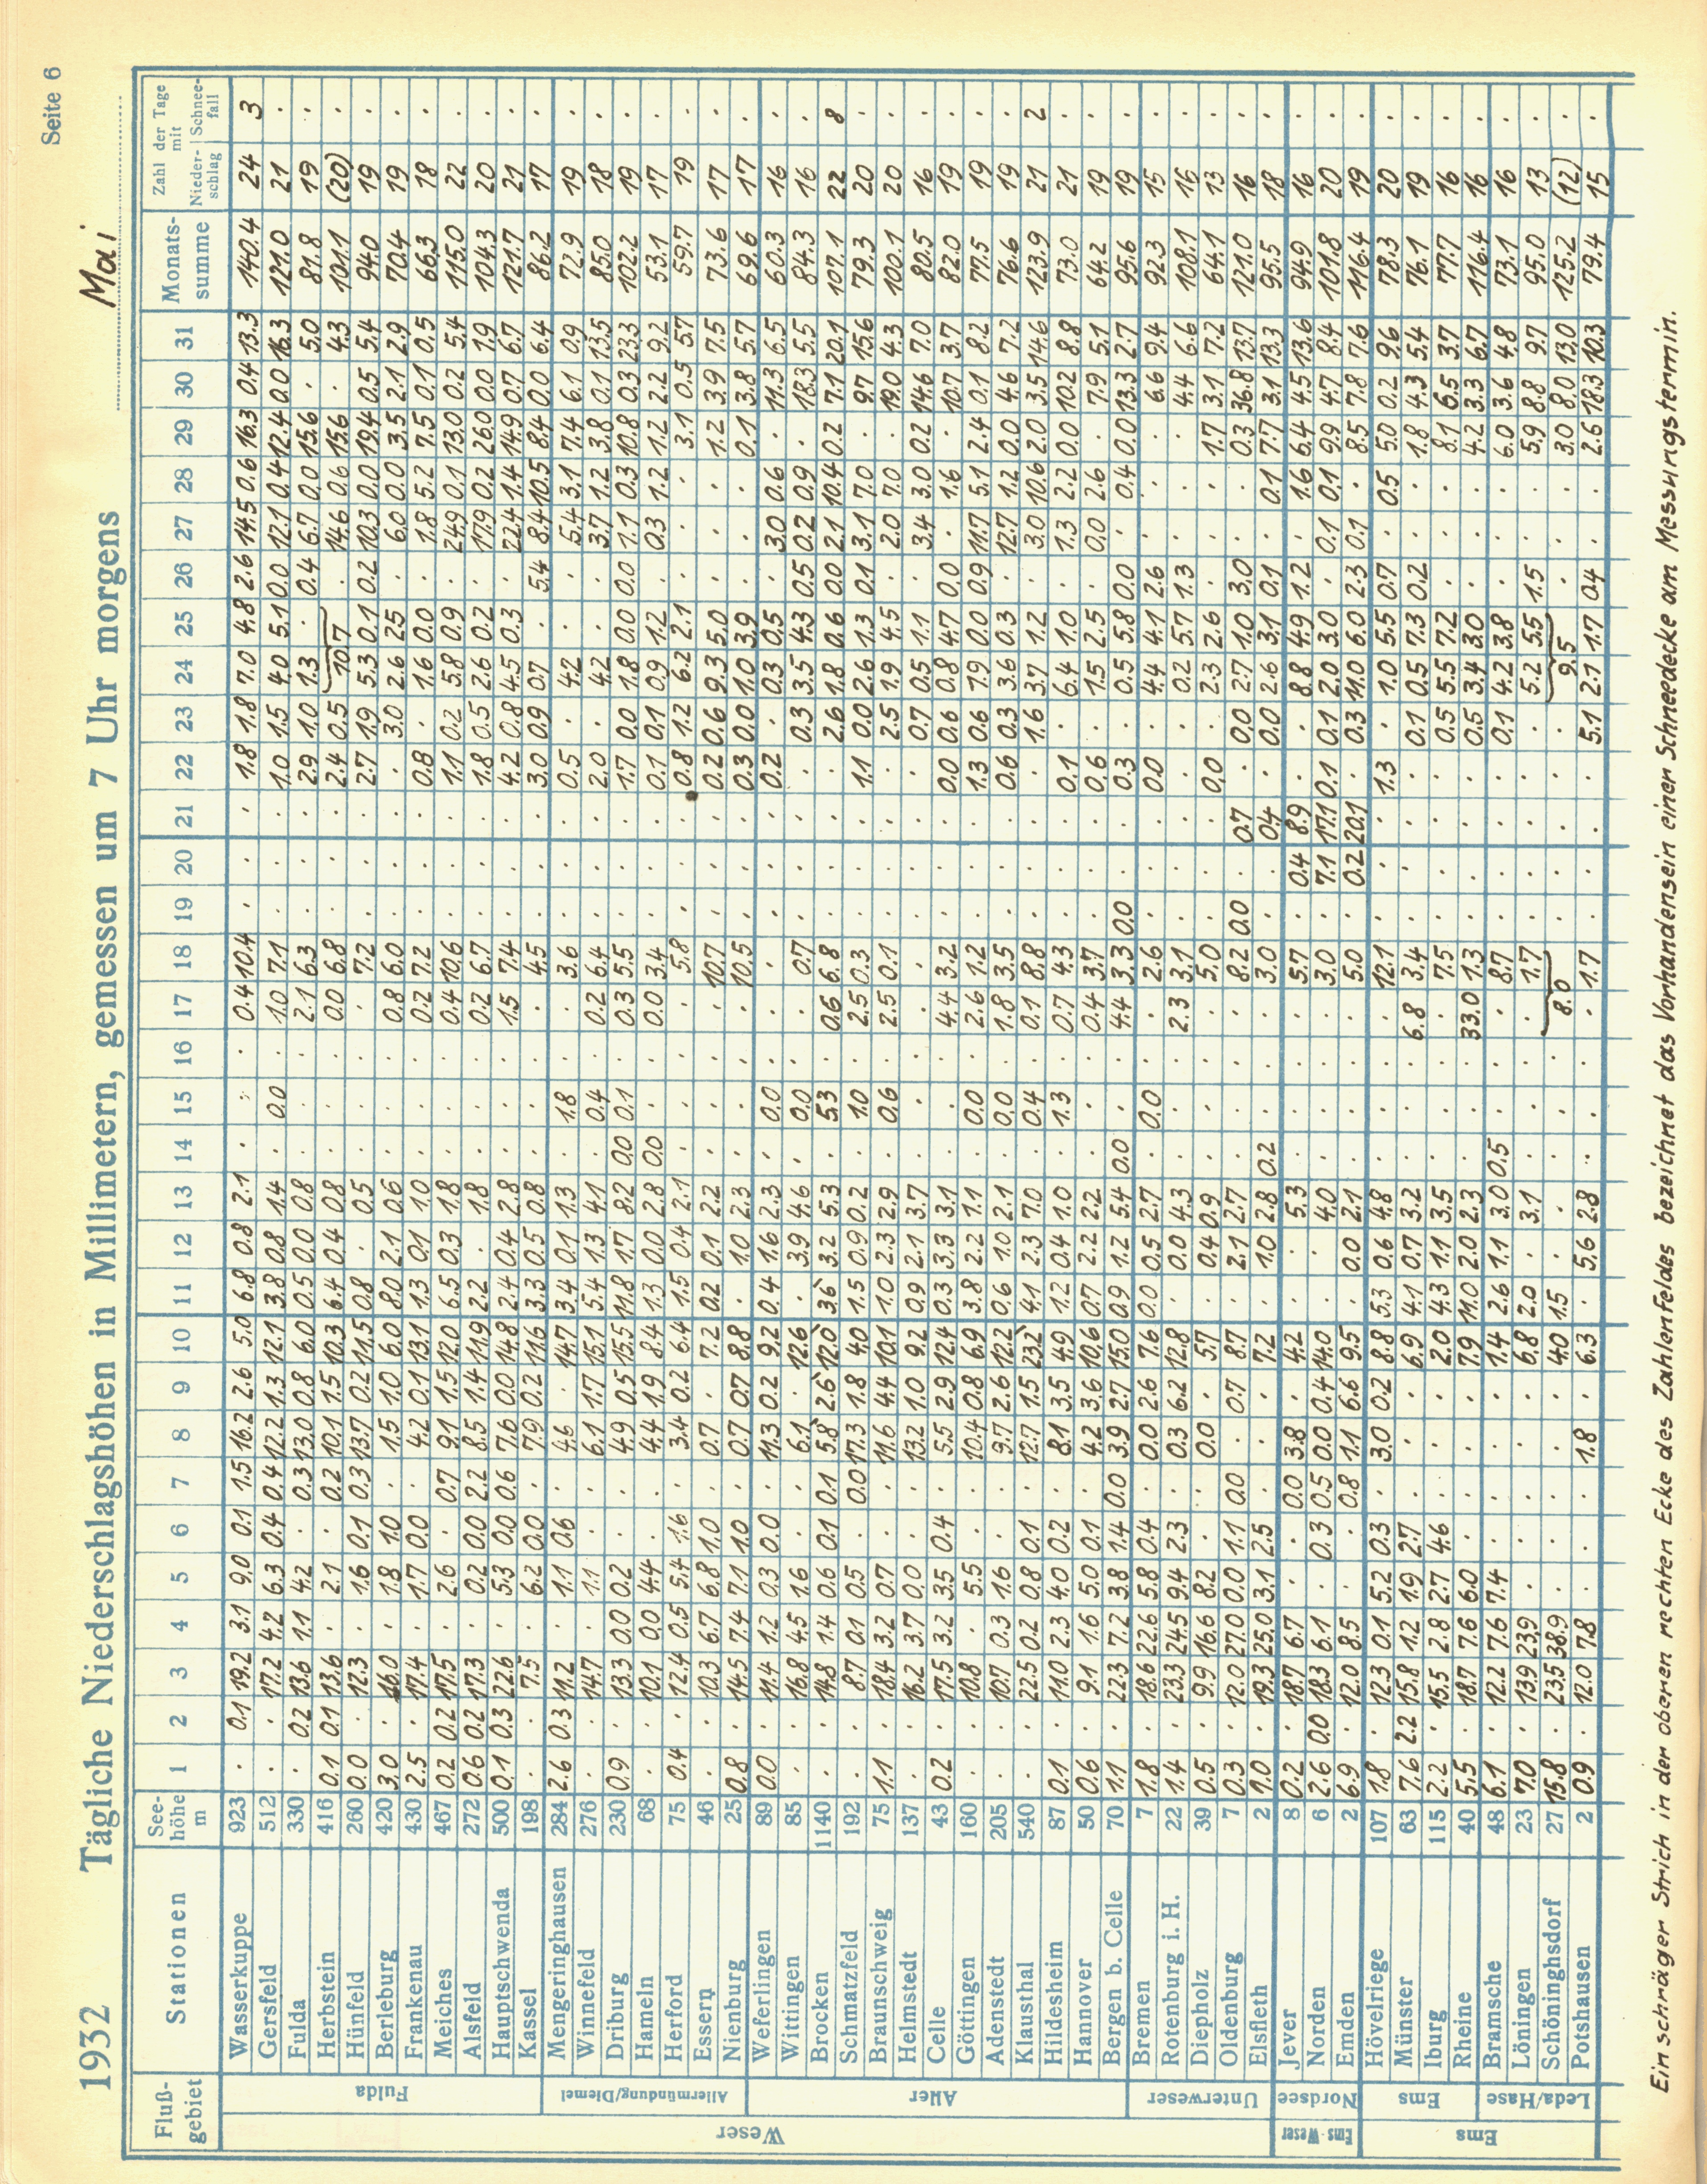 Seite 6
1932 Tägliche Niederschlagshöhen in Millimetern, gemessen um 7 Uhr morgens Mai
Fluß-gebiet Stationen See-höhe m 1 2 3 4 5 6 7 8 9 10 11 12 13 14 15 16 17 18 19 20 21 22 23 24 25 26 27 28 29 30 31 Monats-summe Zahl der Tage mit Nieder-schlag Schnee-fall
Weser
Fulda
Wasserkuppe 923 . 0.1 19.2 3.1 9.0 0.1 1.5 16.2 2.6 5.0 6.8 0.8 2.1 . . . 0.4 10.4 . . . 1.8 1.8 7.0 4.8 2.6 14.5 0.6 16.3 0.4 13.3 140.4 24 3
Gersfeld 512 . . 17.2 4.2 6.3 0.4 0.4 12.2 1.3 12.1 3.8 0.8 1.4 . 0.0 . 1.0 7.1 . . . 1.0 1.5 4.0 5.1 0.0 12.1 0.4 12.4 0.0 16.3 121.0 21 .
Fulda 330 . 0.2 13.6 1.1 4.2 . 0.3 13.0 0.8 6.0 0.5 0.0 0.8 . . . 2.1 6.3 . . . 2.9 1.0 1.3 . 0.4 6.7 0.0 15.6 . 5.0 81.8 19 .
Herbstein 416 0.1 0.1 13.6 . 2.1 . 0.2 10.1 1.5 10.3 6.4 0.4 0.8 . . . 0.0 6.8 . . . 2.4 0.5 10.7 . 14.6 0.6 15.6 . 4.3 101.1 (20) .
Hünfeld 260 0.0 . 12.3 . 1.6 0.1 0.3 13.7 0.2 11.5 0.8 . 0.5 . . . . 7.2 . . . 2.7 1.9 5.3 0.1 0.2 10.3 0.0 19.4 0.5 5.4 94.0 19 .
Berleburg 420 3.0 . 16.0 . 1.8 1.0 . 1.5 1.0 6.0 8.0 2.1 0.6 . . . 0.8 6.0 . . . . 3.0 2.6 2.5 . 6.0 0.0 3.5 2.1 2.9 70.4 19 .
Frankenau 430 2.5 . 17.4 . 1.7 0.0 . 4.2 0.1 13.1 1.3 0.1 1.0 . . . 0.2 7.2 . . . 0.8 . 1.6 0.0 . 1.8 5.2 7.5 0.1 0.5 66.3 18 .
Meiches 467 0.2 0.2 17.5 . 2.6 . 0.7 9.1 1.5 12.0 6.5 0.3 1.8 . . . 0.4 10.6 . . . 1.1 0.2 5.8 0.9 . 24.9 0.1 13.0 0.2 5.4 115.0 22 .
Alsfeld 272 0.6 0.2 17.3 . 0.2 0.0 2.2 8.5 1.4 11.9 2.2 . 1.8 . . . 0.2 6.7 . . . 1.8 0.5 2.6 0.2 . 17.9 0.2 26.0 0.0 1.9 104.3 20 .
Hauptschwenda 500 0.1 0.3 22.6 . 5.3 0.0 0.6 7.6 0.0 14.8 2.4 0.4 2.8 . . . 1.5 7.4 . . . 4.2 0.8 4.5 0.3 . 22.4 1.4 14.9 0.7 6.7 121.7 21 .
Kassel 198 . . 7.5 . 6.2 0.0 . 7.9 0.2 11.6 3.3 0.5 0.8 . . . . 4.5 . . . 3.0 0.9 0.7 . 5.4 8.4 10.5 8.4 0.0 6.4 86.2 17 .
Allermündung/Diemel
Mengeringhausen 284 2.6 0.3 11.2 . 1.1 0.6 . 4.6 . 14.7 3.4 0.1 1.3 . 1.8 . . 3.6 . . . 0.5 . 4.2 . . 5.4 3.1 7.4 6.1 0.9 72.9 19 .
Winnefeld 276 . . 14.7 . 1.1 . . 6.1 1.7 15.1 5.4 1.3 4.1 . 0.4 . 0.2 6.4 . . . 2.0 . 4.2 . . 3.7 1.2 3.8 0.1 13.5 85.0 18 .
Driburg 230 0.9 . 13.3 0.0 0.2 . . 4.9 0.5 15.5 11.8 1.7 8.2 0.0 0.1 . 0.3 5.5 . . . 1.7 0.0 1.8 0.0 0.0 1.1 0.3 10.8 0.3 23.3 102.2 19 .
Hameln 68 . . 10.1 0.0 4.4 . . 4.4 1.9 8.4 1.3 0.0 2.8 0.0 . . 0.0 3.4 . . . 0.1 0.1 0.9 1.2 . 0.3 1.2 1.2 2.2 9.2 53.1 17 .
Herford 75 0.4 . 12.4 0.5 5.4 1.6 . 3.4 0.2 6.4 1.5 0.4 2.1 . . . . 5.8 . . . 0.8 1.2 6.2 2.1 . . . 3.1 0.5 5.7 59.7 19 .
Essern 46 . . 10.3 6.7 6.8 1.0 . 0.7 . 7.2 0.2 0.1 2.2 . . . . 10.7 . . . 0.2 0.6 9.3 5.0 . . . 1.2 3.9 7.5 73.6 17 .
Nienburg 25 0.8 . 14.5 7.4 7.1 1.0 . 0.7 0.7 8.8 . 1.0 2.3 . . . . 10.5 . . . 0.3 0.0 1.0 3.9 . . . 0.1 3.8 5.7 69.6 17 .
Aller
Weferlingen 89 0.0 . 11.4 1.2 0.3 0.0 . 11.3 0.2 9.2 0.4 1.6 2.3 . 0.0 . . . . . . 0.2 . 0.3 0.5 . 3.0 0.6 . 11.3 6.5 60.3 16 .
Wittingen 85 . . 16.8 4.5 1.6 . . 6.1 . 12.6 . 3.9 4.6 . 0.0 . . 0.7 . . . . 0.3 3.5 4.3 0.5 0.2 0.9 . 18.3 5.5 84.3 16 .
Brocken 1140 . . 14.8 1.4 0.6 0.1 0.1 5.8` 2.6` 12.0` 3.6` 3.2 5.3 . 5.3 . 0.6 6.8 . . . . 2.6 1.8 0.6 0.0 2.1 10.4 0.2 7.1 20.1 107.1 22 8
Schmatzfeld 192 . . 8.7 0.1 0.5 . 0.0 17.3 1.8 4.0 1.5 0.9 0.2 . 1.0 . 2.5 0.3 . . . 1.1 0.0 2.6 1.3 0.1 3.1 7.0 . 9.7 15.6 79.3 20 .
Braunschweig 75 1.1 . 18.4 3.2 0.7 . . 11.6 4.4 10.1 1.0 2.3 2.9 . 0.6 . 2.5 0.1 . . . . 2.5 1.9 4.5 . 2.0 7.0 . 19.0 4.3 100.1 20 .
Helmstedt 137 . . 16.2 3.7 0.0 . . 13.2 1.0 9.2 0.9 2.1 3.7 . . . . . . . . . 0.7 0.5 1.1 . 3.4 3.0 0.2 14.6 7.0 80.5 16 .
Celle 43 0.2 . 17.5 3.2 3.5 0.4 . 5.5 2.9 12.4 0.3 3.3 3.1 . . . 4.4 3.2 . . . 0.0 0.6 0.8 4.7 0.0 . 1.6 . 10.7 3.7 82.0 19 .
Göttingen 160 . . 10.8 . 5.5 . . 10.4 0.8 6.9 3.8 2.2 1.1 . 0.0 . 2.6 1.2 . . . 1.3 0.6 7.9 0.0 0.9 11.7 5.1 2.4 0.1 8.2 77.5 19 .
Adenstedt 205 . . 10.7 0.3 1.6 . . 9.7 2.6 12.2 0.6 1.0 2.1 . 0.0 . 1.8 3.5 . . . 0.6 0.3 3.6 0.3 . 12.7 1.2 0.0 4.6 7.2 76.6 19 .
Klausthal 540 . . 22.5 0.2 0.8 0.1 . 12.7 1.5 23.2` 4.1 2.3 7.0 . 0.4 . 0.1 8.8 . . . . 1.6 3.7 1.2 . 3.0 10.6 2.0 3.5 14.6 123.9 21 2
Hildesheim 87 0.1 . 11.0 2.3 4.0 0.2 . 8.1 3.5 4.9 1.2 0.4 1.0 . 1.3 . 0.7 4.3 . . . 0.1 . 6.4 1.0 . 1.3 2.2 0.0 10.2 8.8 73.0 21 .
Hannover 50 0.6 . 9.1 1.6 5.0 0.1 . 4.2 3.6 10.6 0.7 2.2 2.2 . . . 0.4 3.7 . . . 0.6 . 1.5 2.5 . 0.0 2.6 . 7.9 5.1 64.2 19 .
Bergen b. Celle 70 1.1 . 22.3 7.2 3.8 1.4 0.0 3.9 2.7 15.0 0.9 1.2 5.4 0.0 . . 4.4 3.3 0.0 . . 0.3 . 0.5 5.8 0.0 . 0.4 0.0 13.3 2.7 95.6 19 .
Unterweser
Bremen 7 1.8 . 18.6 22.6 5.8 0.4 . 0.0 2.6 7.6 0.0 0.5 2.7 . 0.0 . . 2.6 . . . 0.0 . 4.4 4.1 2.6 . . . 6.6 9.4 92.3 15 .
Rotenburg i. H. 22 1.4 . 23.3 24.5 9.4 2.3 . 0.3 6.2 12.8 . 0.0 4.3 . . . 2.3 3.1 . . . . . 0.2 5.7 1.3 . . . 4.4 6.6 108.1 16 .
Diepholz 39 0.5 . 9.9 16.6 8.2 . . 0.0 . 5.7 . 0.4 0.9 . . . . 5.0 . . . 0.0 . 2.3 2.6 . . . 1.7 3.1 7.2 64.1 13 .
Oldenburg 7 0.3 . 12.0 27.0 0.0 1.1 0.0 . 0.7 8.7 . 2.1 2.7 . . . . 8.2 0.0 . 0.7 . 0.0 2.7 1.0 3.0 . . 0.3 36.8 13.7 121.0 16 .
Elsfleth 2 1.0 . 19.3 25.0 3.1 2.5 . . . 7.2 . 1.0 2.8 0.2 . . . 3.0 . . 0.4 . 0.0 2.6 3.1 0.1 . 0.1 7.7 3.1 13.3 95.5 18 .
Ems-Weser
Nordsee
Jever 8 0.2 . 18.7 6.7 . . 0.0 3.8 . 4.2 . . 5.3 . . . . 5.7 . 0.4 8.9 . . 8.8 4.9 1.2 . 1.6 6.4 4.5 13.6 94.9 16 .
Norden 6 2.6 0.0 18.3 6.1 . 0.3 0.5 0.0 0.4 14.0 . . 4.0 . . . . 3.0 . 7.1 17.1 0.1 0.1 2.0 3.0 . 0.1 0.1 9.9 4.7 8.4 101.8 20 .
Emden 2 6.9 . 12.0 8.5 . . 0.8 1.1 6.6 9.5 . 0.0 2.1 . . . . 5.0 . 0.2 20.1 . 0.3 11.0 6.0 2.3 0.1 . 8.5 7.8 7.6 116.4 19 .
Ems
Ems
Hövelriege 107 1.8 . 12.3 0.1 5.2 0.3 . 3.0 0.2 8.8 5.3 0.6 4.8 . . . . 12.1 . . . 1.3 . 1.0 5.5 0.7 . 0.5 5.0 0.2 9.6 78.3 20 .
Münster 63 7.6 2.2 15.8 1.2 1.9 2.7 . . . 6.9 4.1 0.7 3.2 . . . 6.8 3.4 . . . . 0.1 0.5 7.3 0.2 . . 1.8 4.3 5.4 76.1 19 .
Iburg 115 2.2 . 15.5 2.8 2.7 4.6 . . . 2.0 4.3 1.1 3.5 . . . . 7.5 . . . . 0.5 5.5 7.2 . . . 8.1 6.5 3.7 77.7 16 .
Rheine 40 5.5 . 18.7 7.6 6.0 . . . . 7.9 11.0 2.0 2.3 . . . 33.0 1.3 . . . . 0.5 3.4 3.0 . . . 4.2 3.3 6.7 116.4 16 .
Leda/Hase
Bramsche 48 6.1 . 12.2 7.6 7.4 . . . . 1.4 2.6 1.1 3.0 0.5 . . . 8.7 . . . . 0.1 4.2 3.8 . . . 6.0 3.6 4.8 73.1 16 .
Löningen 23 7.0 . 13.9 23.9 . . . . . 6.8 2.0 . 3.1 . . . . 1.7 . . . . . 5.2 5.5 1.5 . . 5.9 8.8 9.7 95.0 13 .
Schöninghsdorf 27 15.8 . 23.5 38.9 . . . . . 4.0 1.5 . . . . . 8.0 . . . . . 9.5 . . . 3.0 8.0 13.0 125.2 (12) .
Potshausen 2 0.9 . 12.0 7.8 . . . 1.8 . 6.3 . 5.6 2.8 . . . . 1.7 . . . . 5.1 2.1 1.7 0.4 . . 2.6 18.3 10.3 79.4 15 .
Ein schräger Strich in der oberen rechten Ecke des Zahlenfeldes bezeichnet das Vorhandensein einer Schneedecke am Messungstermin.